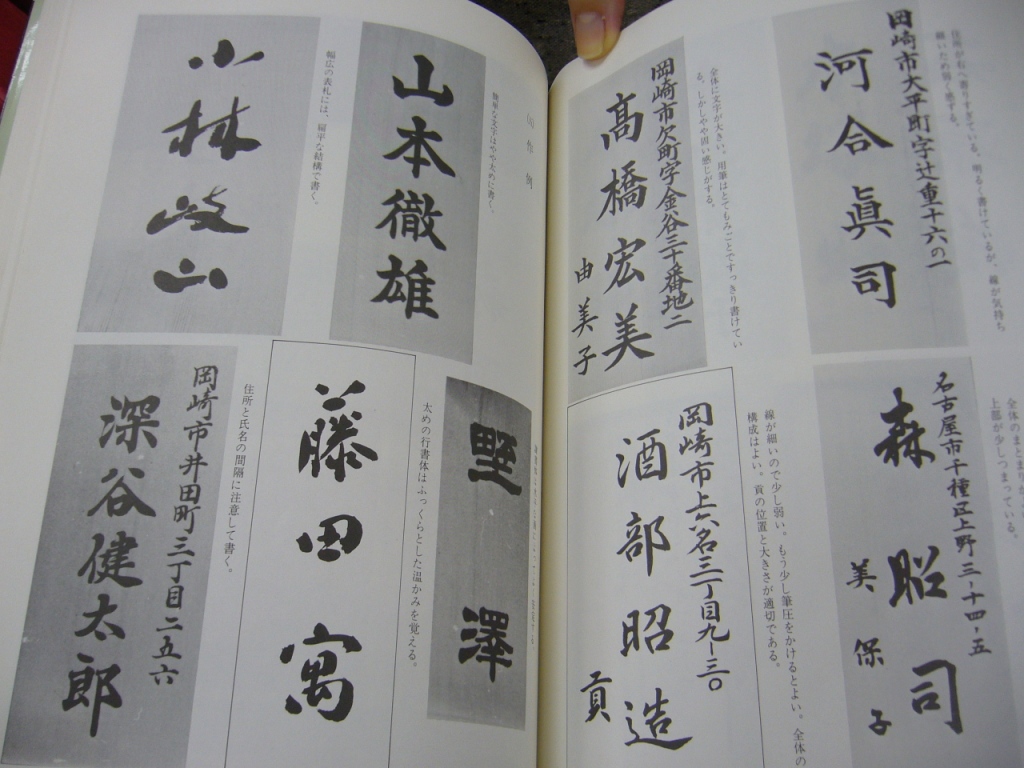 岡崎市大平町字辻重十六の一
河合眞司
住所が右へ寄りすぎている。明るく書けているが、線が気持ち
細いため弱く感ずる。
岡崎市欠町字金谷三十番地二
高橋宏美
由美子
全体に文字が大きい。用筆はとてもみごとですっきり書けてい
る。しかしやや固い感じがする。
名古屋市千種区上野三-十四-五
森昭司
美保子
上部が少しつまっている。
岡崎市上六名三丁目九-三〇
酒部昭造
貢
線が細いので少し弱い。もう少し筆圧をかけるとよい。全体の
構成はよい。貢の位置と大きさが適切である。
山本徹雄
簡単な文字はやや太めに書く。
小林岐山
幅広の表札には、扁平な結構で書く。
野澤
太めの行書体はふっくらとした温かみを覚える。
藤田寓
岡崎市井田町三丁目二五六
深谷健太郎
住所と氏名の間隔に注意して書く。